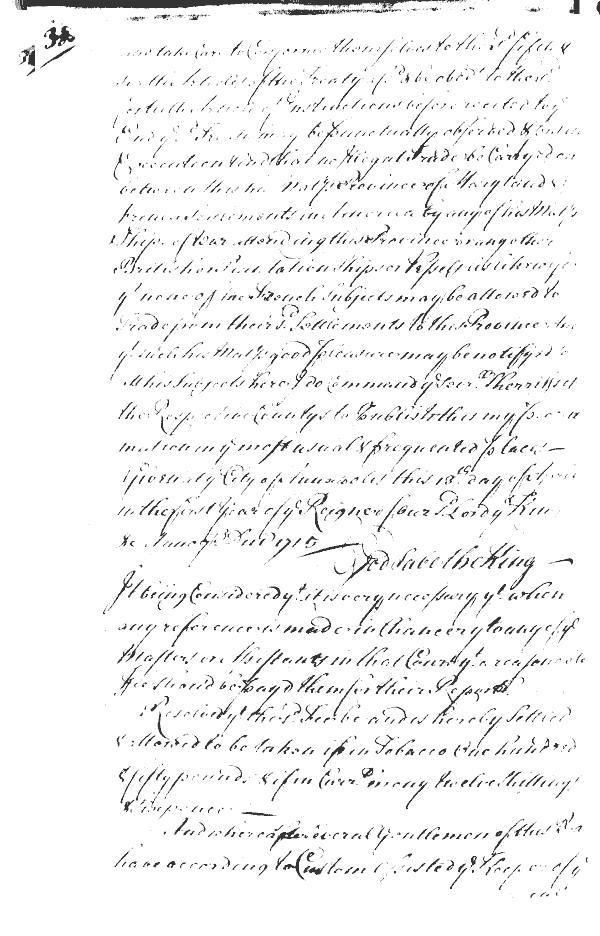 38
take Care to Conforme themselves to the sd. fifth &
sixth Articles of the Treaty afsd. & be obedt. to their
Instructions before recited to ye
End ye. same may be punctually observed & put in
Execution & and that no Illegal Trade be Carryed on
between this his Majtys Province of Maryland &
french Settlements in America by any of his Majtys
Ships of War attending this Province or any other
British or Plantation Ships or Vessels as likewise
yt. none of the French Subjects may be allowed to
Trade from their sd. Settlements to this Province And
yt. such his Majtys good pleasure may be notifyed to
all his Subjects here I do Command ye. sevrl. Sherriffs of
the Respective Countys to Publish this my
mation in ye. most usual & frequented places —
Given at ye. City of Annapolis this 18th. day of
in the first Year of ye. Reigne of our sd. Lord ye. King
&c Annoq Dni 1715
God Save the King —
It being Considered yt. it is very necessary yt. when
any reference is made in Chancery to any of ye.
Masters or Assistants in that Court yt. a reasonable
fee should be payd them for their Reports
Resolved yt. the sd. Fee be and is hereby Settled
& Allowed to be taken if in Tobacco One hundred
& fifty pounds & if in Currt. mony twelve Shillings
& Sixpence —
And whereas several Gentlemen of this
have according to Custom Assisted ye. Keeper of ye.